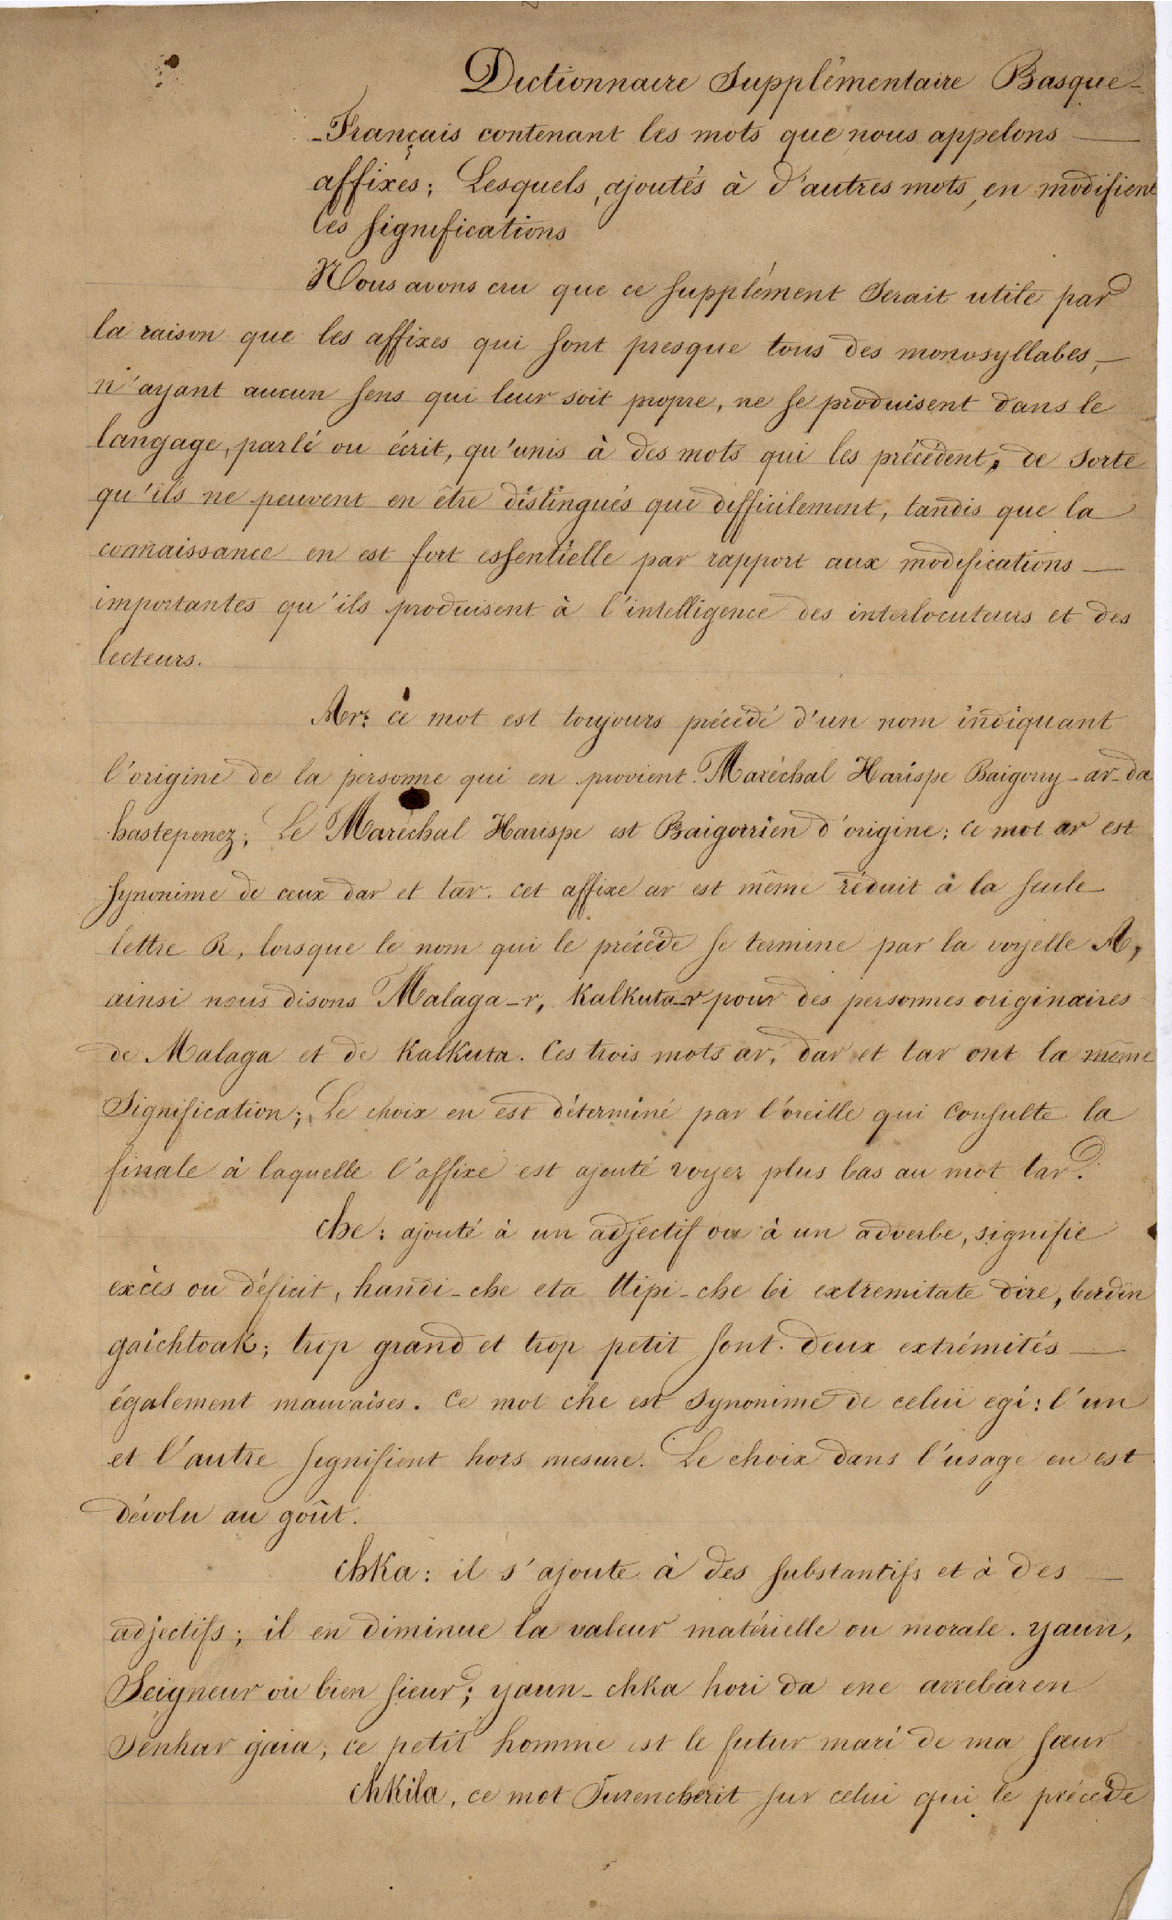 Dictionnaire Supplémentaire Basque-
-Français contenant les mots que nous appelons
affixes; Lesquels, ajoutés à d'autres mots, en modifient
les significations
Nous avons cru que ce supplément serait utile par
la raison que les affixes qui sont presque tous des monosyllabes,
n'ayant aucun sens qui leur soit propre, ne se produisent dans le
langage, parlé ou écrit, qu'unis à des mots qui les précèdent, de sorte
qu'ils ne peuvent en être distingués que difficilement, tandis que la
connaissance en est fort essentielle par rapport aux modifications
importantes qu'ils produisent à l'intelligence des interlocuteurs et des
lecteurs.
Ar: ce mot est toujours précédé d'un nom indiquant
l'origine de la personne qui en provient. Maréchal Harispe Baigorry-ar-da
hastepenez; Le Maréchal Harispe est Baigorrien d'origine; ce mot ar est
synonime de ceux dar et tar. cet affixe ar est même réduit à la seule
lettre R, lorsque le nom qui le précède se termine par la voyelle A,
ainsi nous disons Malaga-r, Kalkuta-r pour des personnes originaires
de Malaga et de Kalkuta. Ces trois mots ar, dar et tar ont la même
Signification; Le choix en est déterminé par l'oreille qui Consulte la
finale à laquelle l'affixe est ajouté voyez plus bas au mot tar.
Che: ajouté à un adjectif ou à un adverbe, signifie
excès ou déficit, handi-che eta ttipi-che bi extremitate dire, berdin
gaichtoak; trop grand et trop petit sont deux extrémités
également mauvaises. Ce mot che est synonime de celui egi: l'un
et l'autre signifient hors mesure. Le choix dans l'usage en est
dévolu au goût.
Chka: il s'ajoute à des substantifs et à des
adjectifs; il en diminue la valeur matérielle ou morale. yaun,
Seigneur ou bien sieur; yaun-chka hori da ene arrebaren
senhar gaia; ce petit homme est le futur mari de ma sœur
Chkila, ce mot surencherit sur celui qui le précède